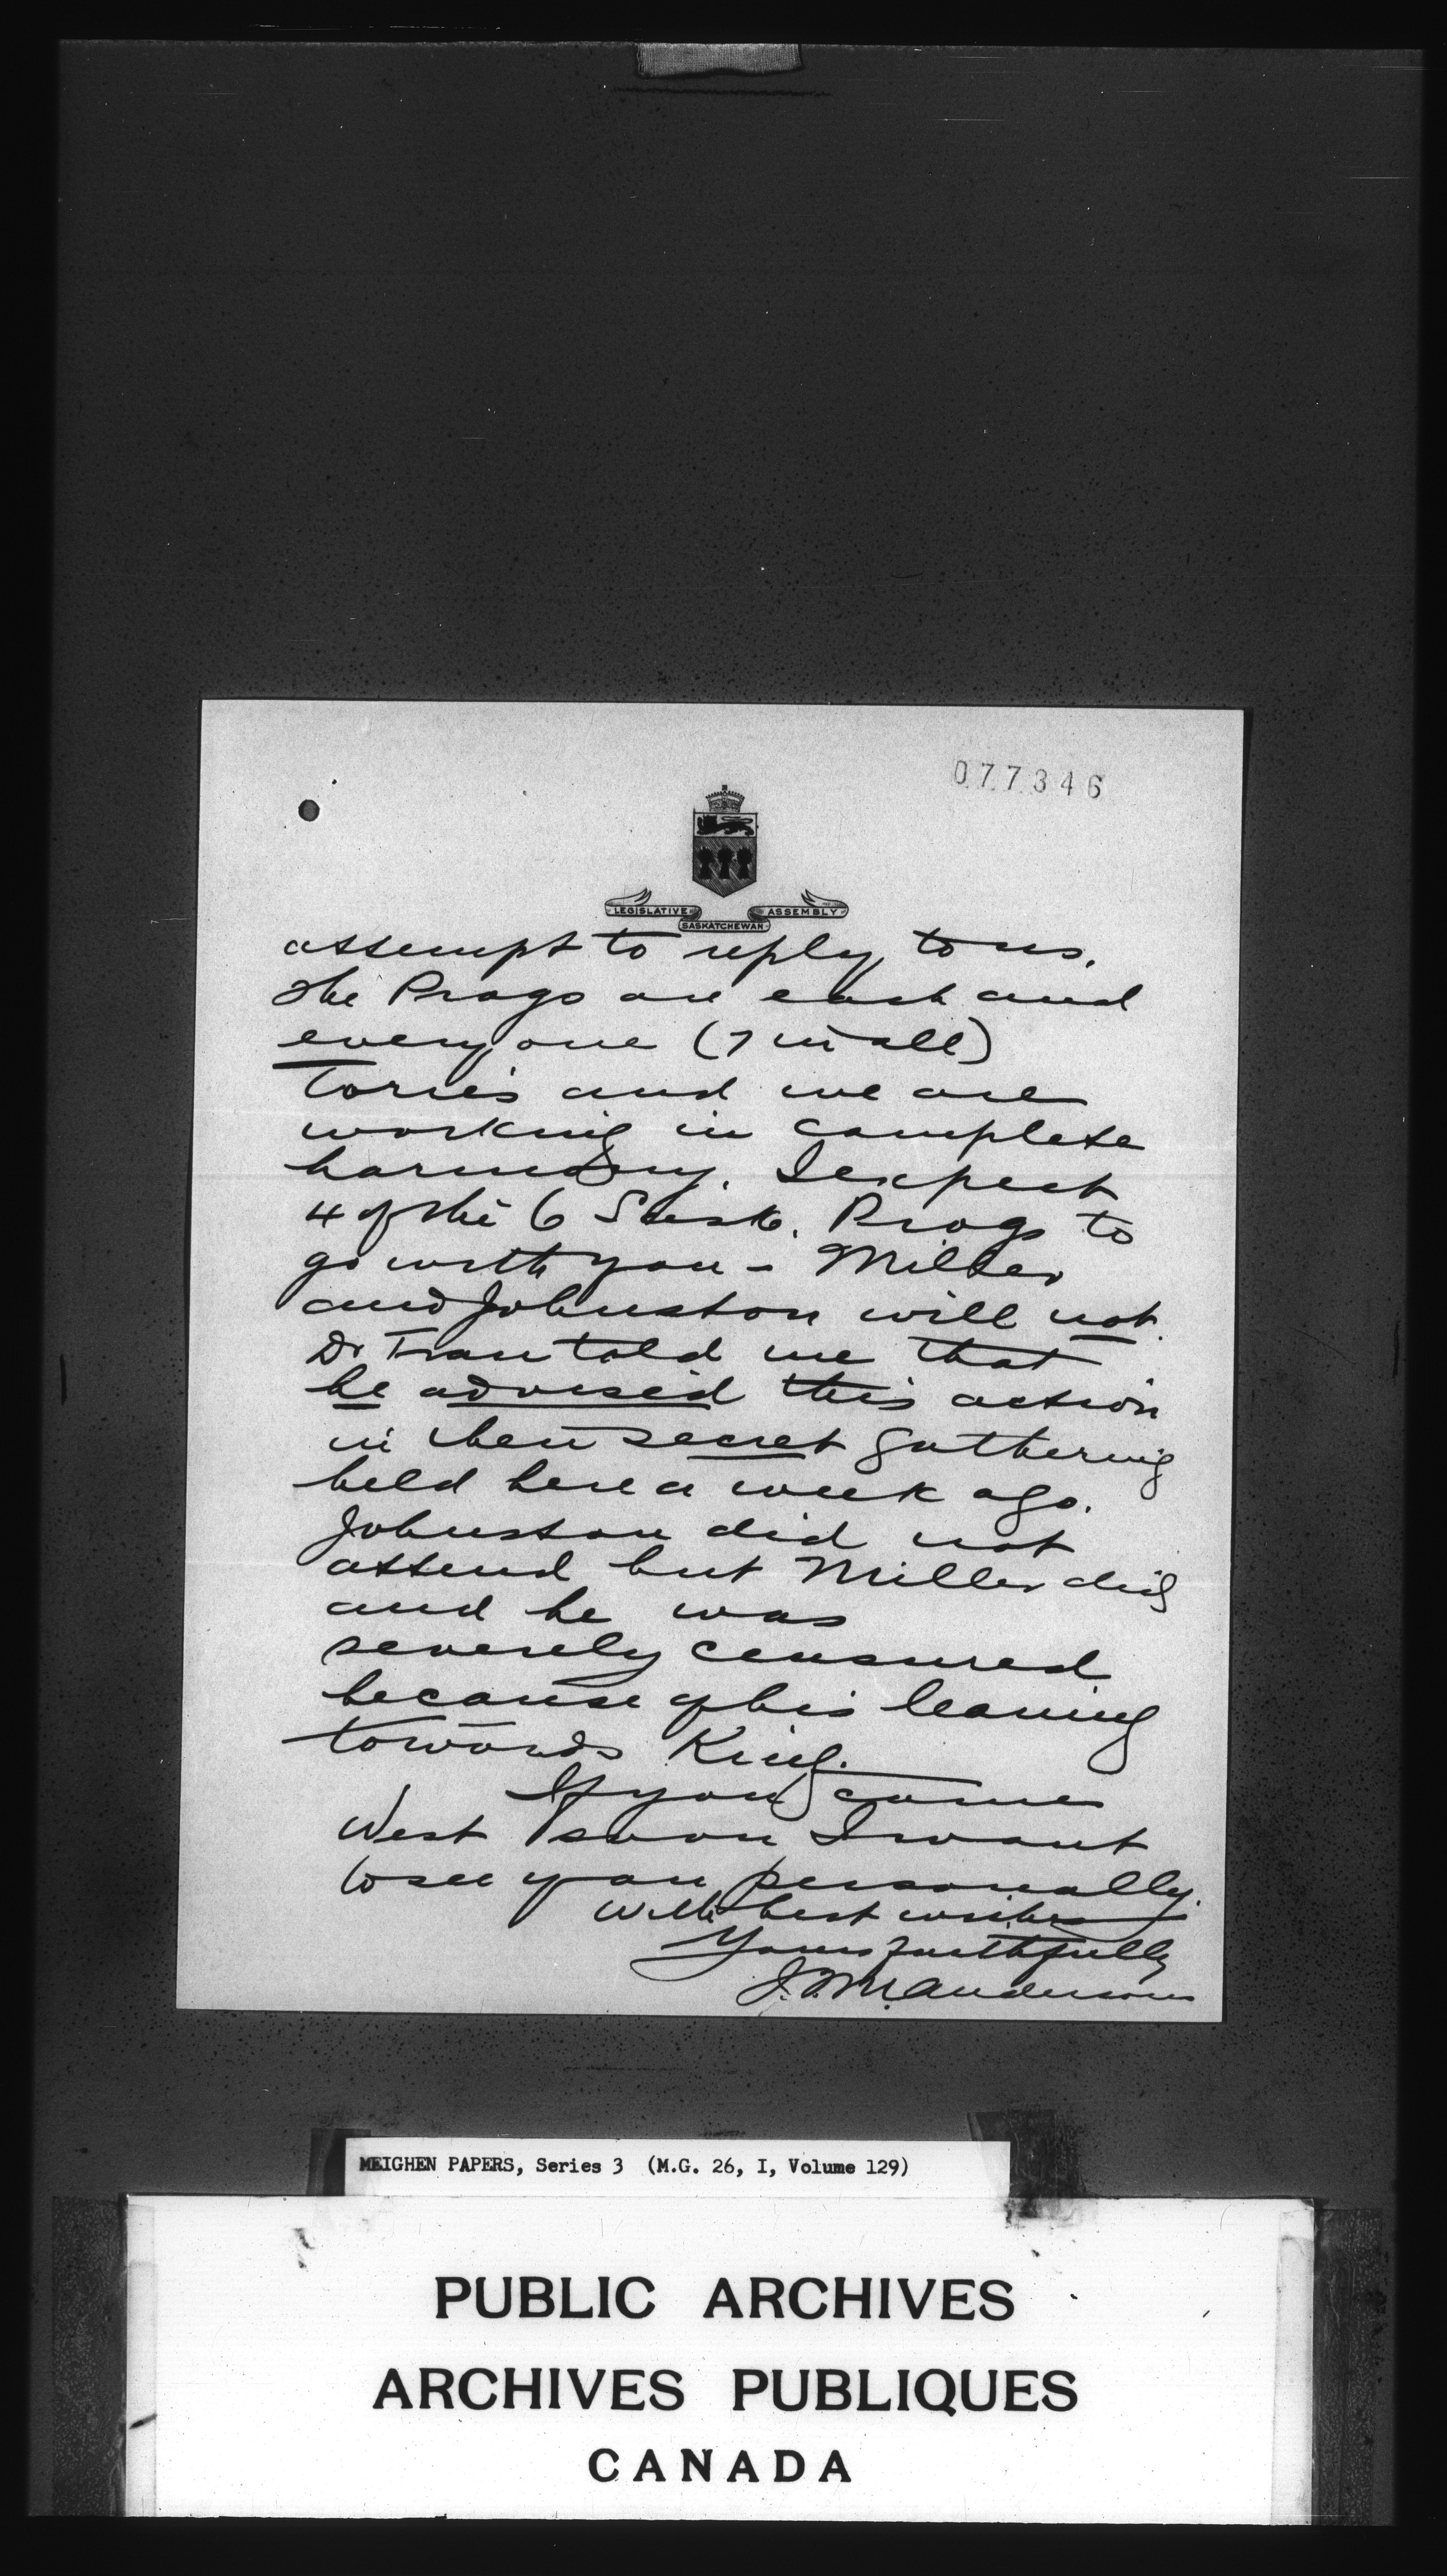 077346
LEGISLATIVE ASSEMBLY
SASKATCHEWAN
attempt to reply to us.
The Progs are each and
every one (7 in all)
Tories and we are
working in complete
harmony. I expect
4 of the 6 Sask. Progs to
go with you - Miller
and Johnston will not.
Dr told me that
he advised this action
in their secret gathering
held here a week ago.
Johnston did not
attend but Miller did
and he was
severely censured
because of his leaning
towards King.
If you come
West soon I want
to see you personally.
With best wishes
Yours faithfully
J.T.M. Anderson
MEIGHEN PAPERS, Series 3 (M.G. 26, I, Volume 129)
PUBLIC ARCHIVES
ARCHIVES PUBLIQUES
CANADA